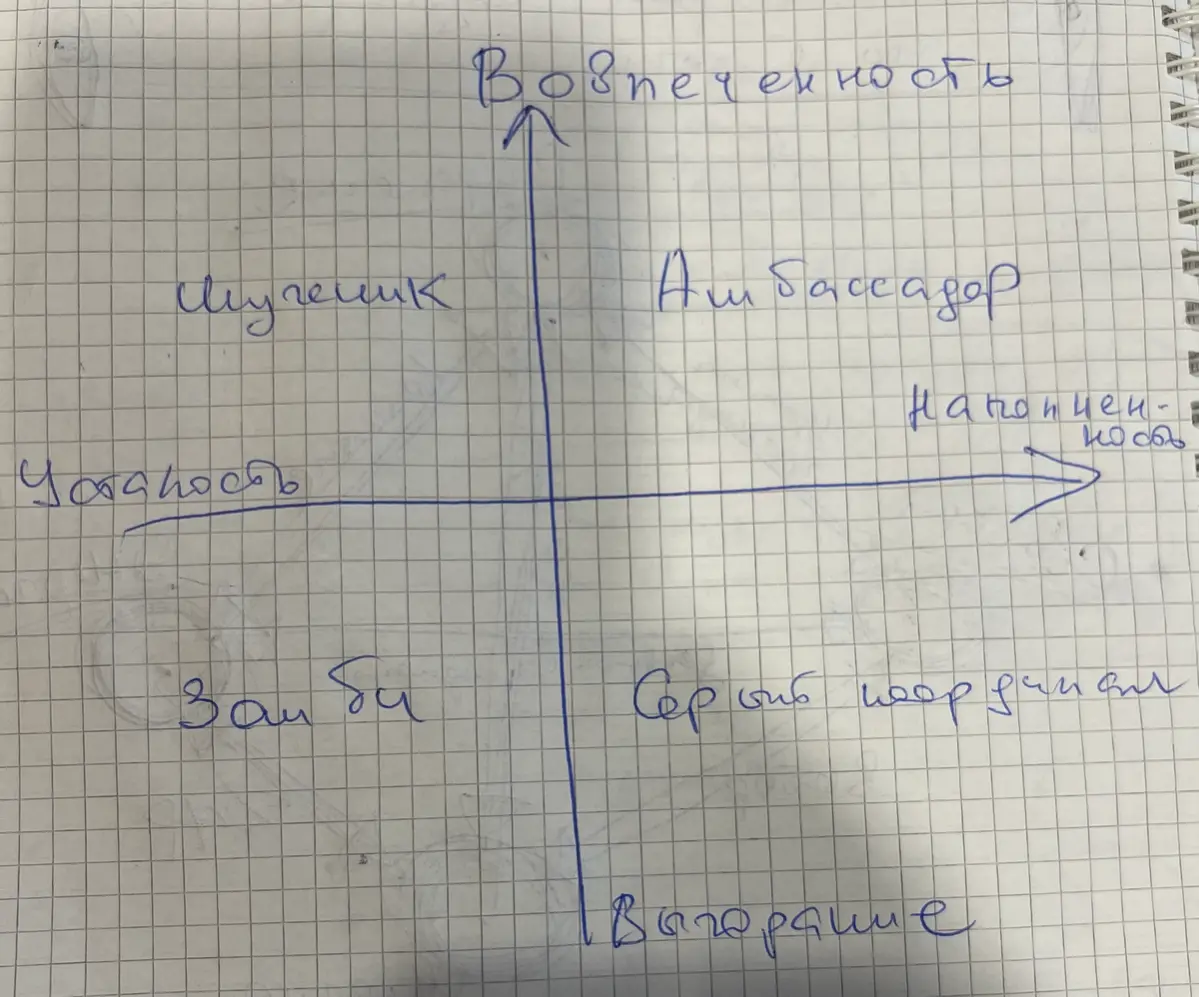 Вовлеченность
Мученик
Амбассадор
Наполнен-
ность
Усталость
Зомби
Серый кардинал
Выгорание